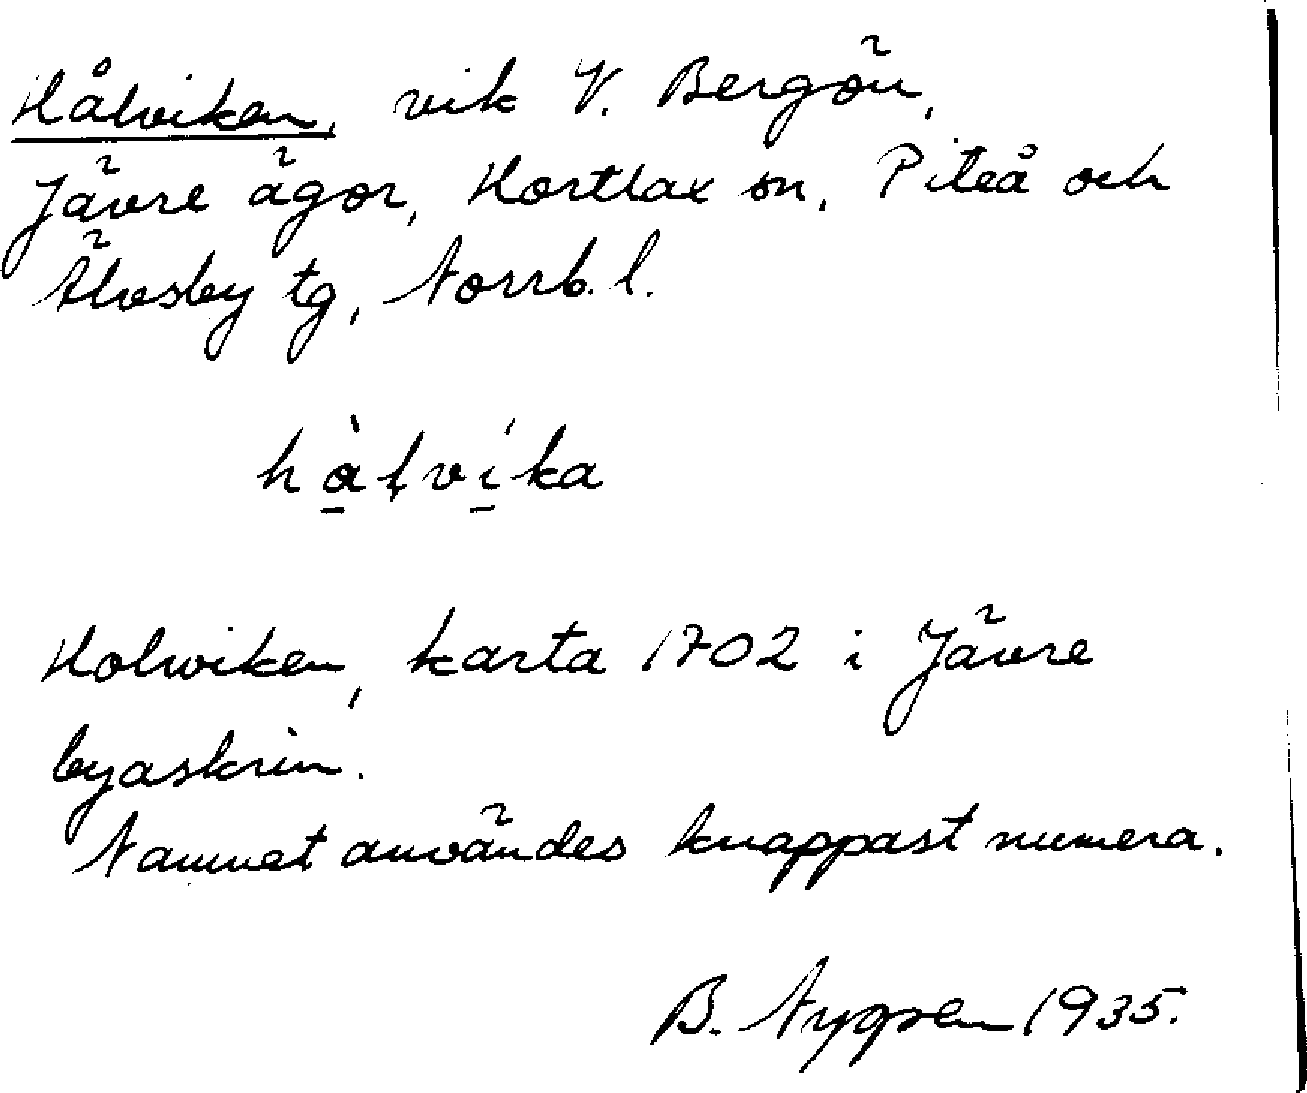 Hålviken, vik V. Bergön,
Jävre ägor, Hortlax sn, Piteå och
Älvsby tg, Norrb. l.
hà̱ḷví̱ka
Holwiken, karta 1702 i Jävre
byaskrin.
Namnet användes knappast numera.
B. Nygren 1935.